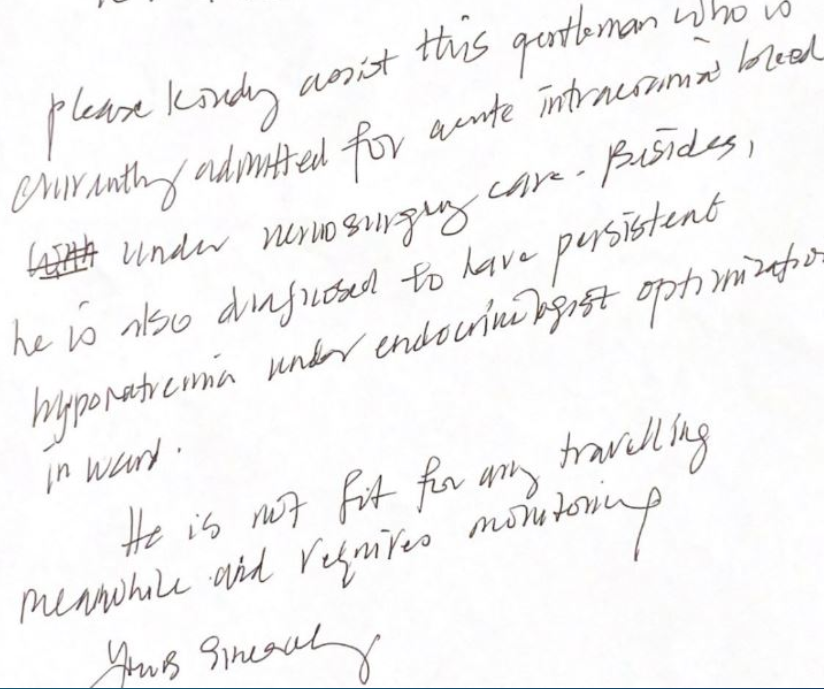 please kindly assist this gentleman who is
currently admitted for acute intracranial bleed
under neurosurgery care. Besides,
he is also diagnosed to have persistent
hyponatremia under endocrinologist optimization
in ward.
He is not fit for any travelling
meanwhile and requires monitoring
Yours Sincerely